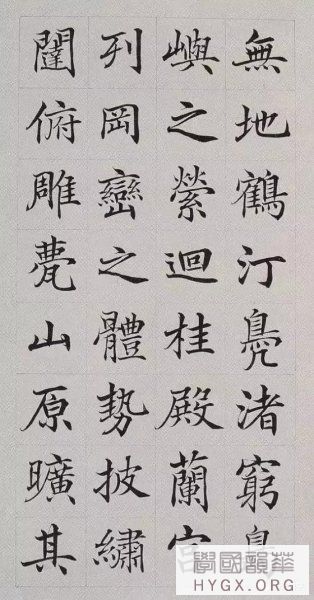 無地鶴汀鳧渚窮島
嶼之縈迴桂殿蘭宮
列岡巒之體勢披繡
闥俯雕甍山原曠其
華韻國學
HYGX.ORG